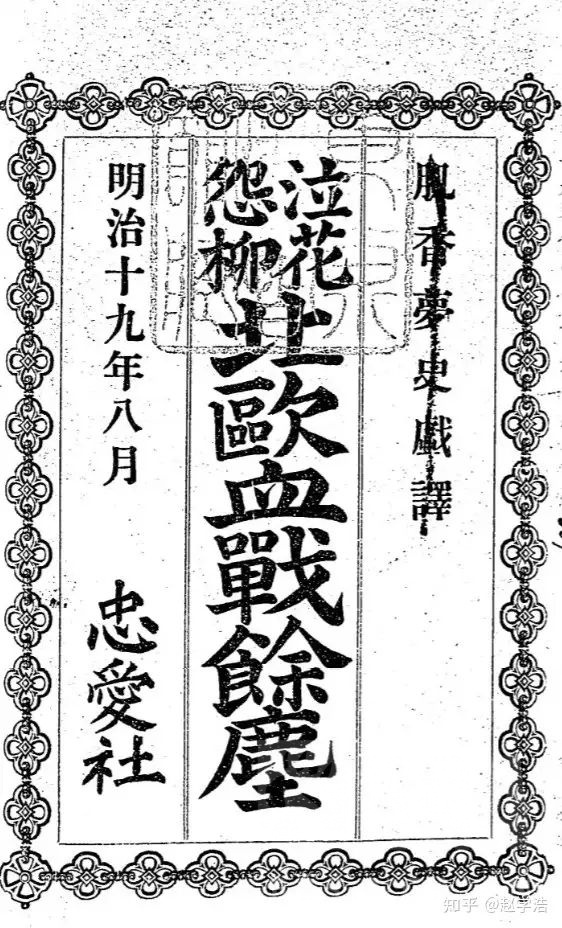 肌香夢史戲譯
泣花
怨柳
北歐血戰餘塵
明治十九年八月
忠愛社
知乎